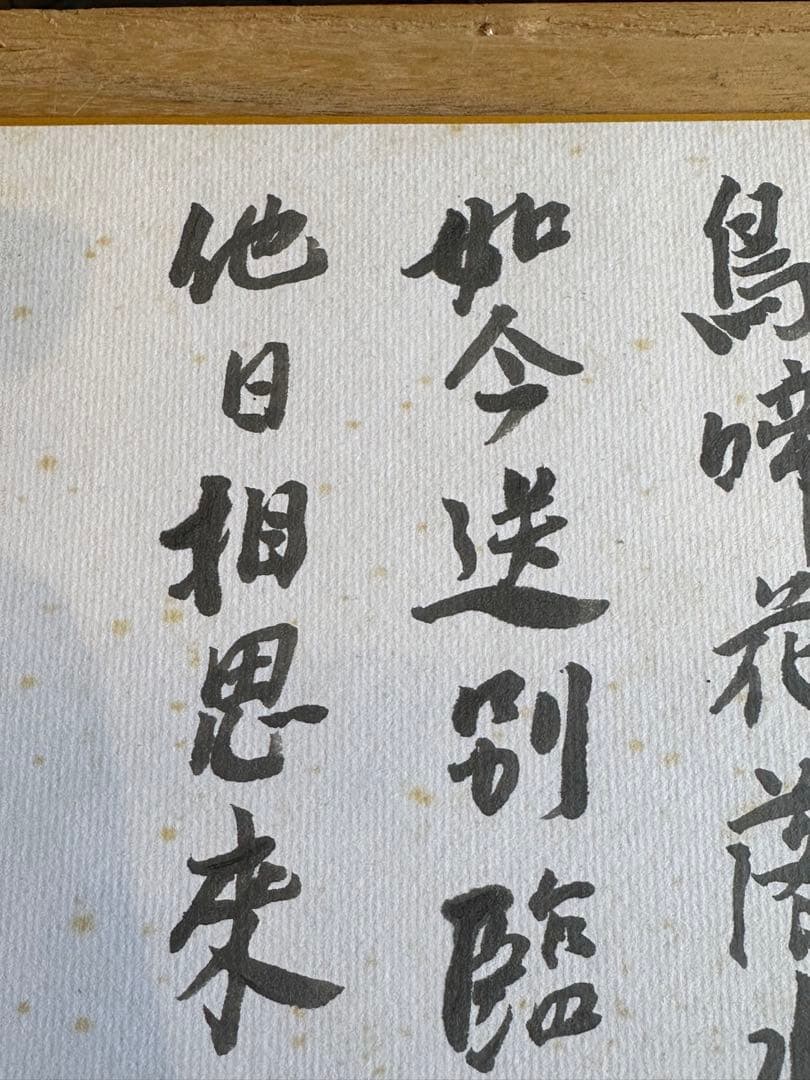 鳥啼花落水
如今送別臨
他日相思來